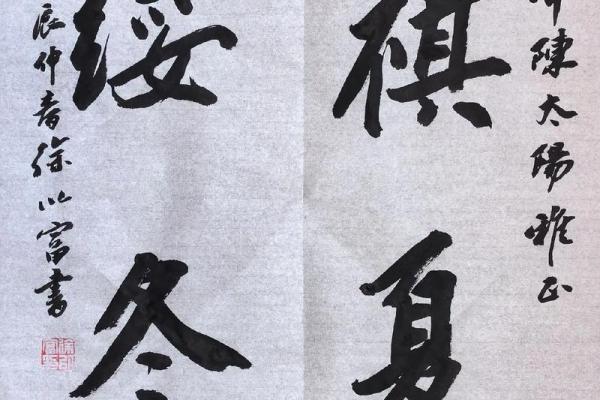 陳太陽雅正
祺夏
綏冬
辰仲春徐以富書